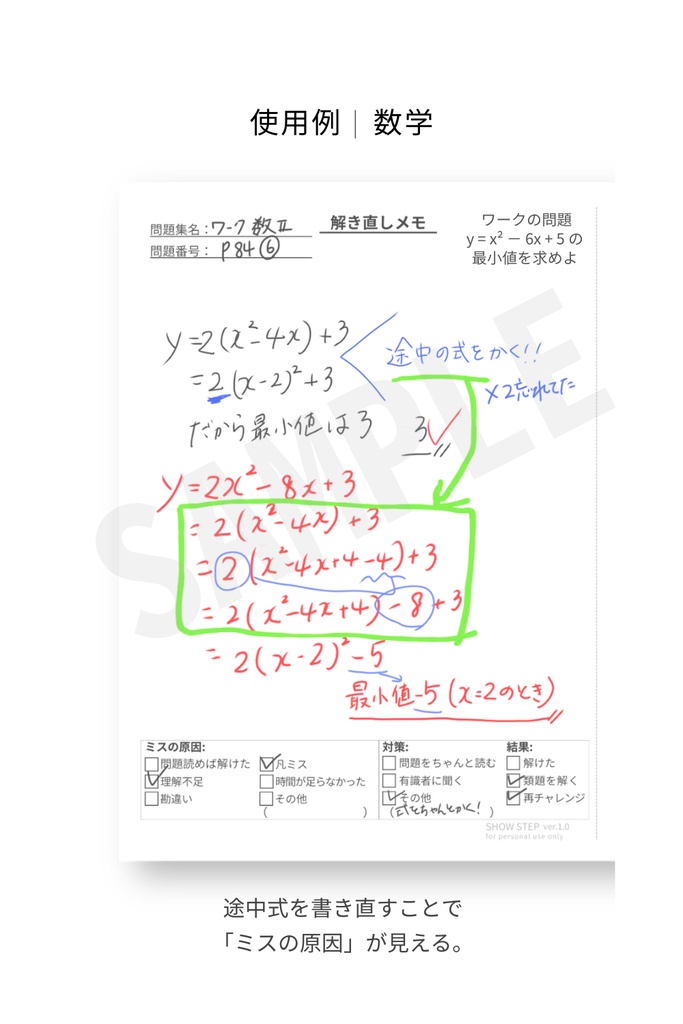 使用例｜数学
問題集名：ワーク 数Ⅱ
問題番号：P84⑥
解き直しメモ
ワークの問題
y = x² － 6x + 5 の
最小値を求めよ
y=2(x²-4x)+3
=2(x-2)²+3
だから最小値は3
3
途中の式をかく!!
×2忘れてた
y=2x²-8x+3
=2(x²-4x)+3
=2(x²-4x+4-4)+3
=2(x²-4x+4)-8+3
=2(x-2)²-5
最小値-5(x=2のとき)
SAMPLE
ミスの原因:
問題読めば解けた
凡ミス
理解不足
時間が足らなかった
勘違い
その他
( )
対策:
問題をちゃんと読む
有識者に聞く
その他
(式をちゃんとかく!)
結果:
解けた
類題を解く
再チャレンジ
SHOW STEP ver.1.0
for personal use only
途中式を書き直すことで
「ミスの原因」が見える。